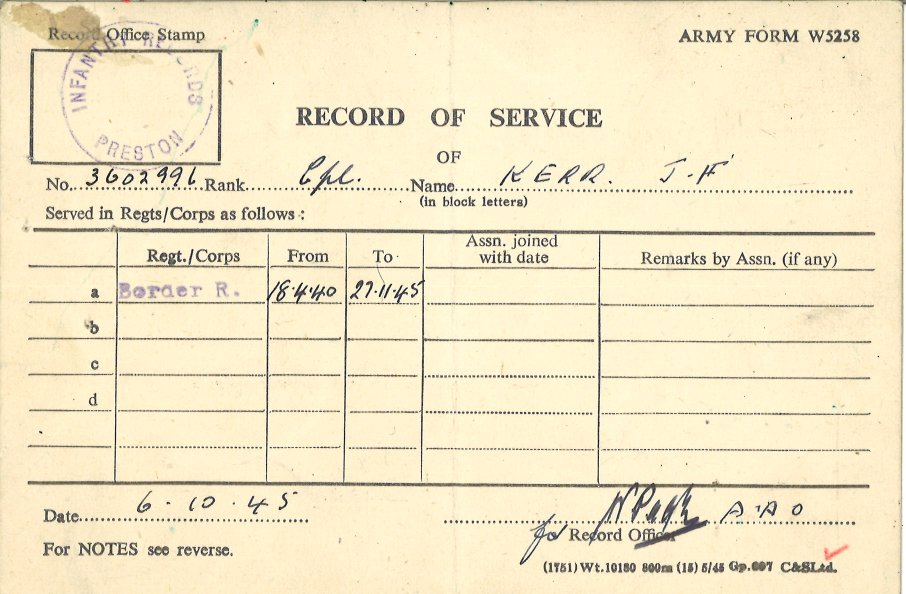 Record Office Stamp
ARMY FORM W5258
INFANTRY RECORDS
PRESTON
RECORD OF SERVICE
OF
No. 3602996 Rank Cpl. Name KERR. J-F
(in block letters)
Served in Regts/Corps as follows :
Regt./Corps From To Assn. joined with date Remarks by Assn. (if any)
a Border R. 18.4.40 27.11.45
b
c
d
Date 6.10.45
A.A O
for Record Officer
For NOTES see reverse.
(1751) Wt.10180 800m (15) 5/45 Gp.697 C&SLtd.